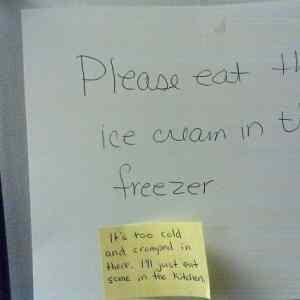 Please eat th
ice cream in t
freezer
It's too cold
and cramped in
there. I'll just eat
some in the kitchen